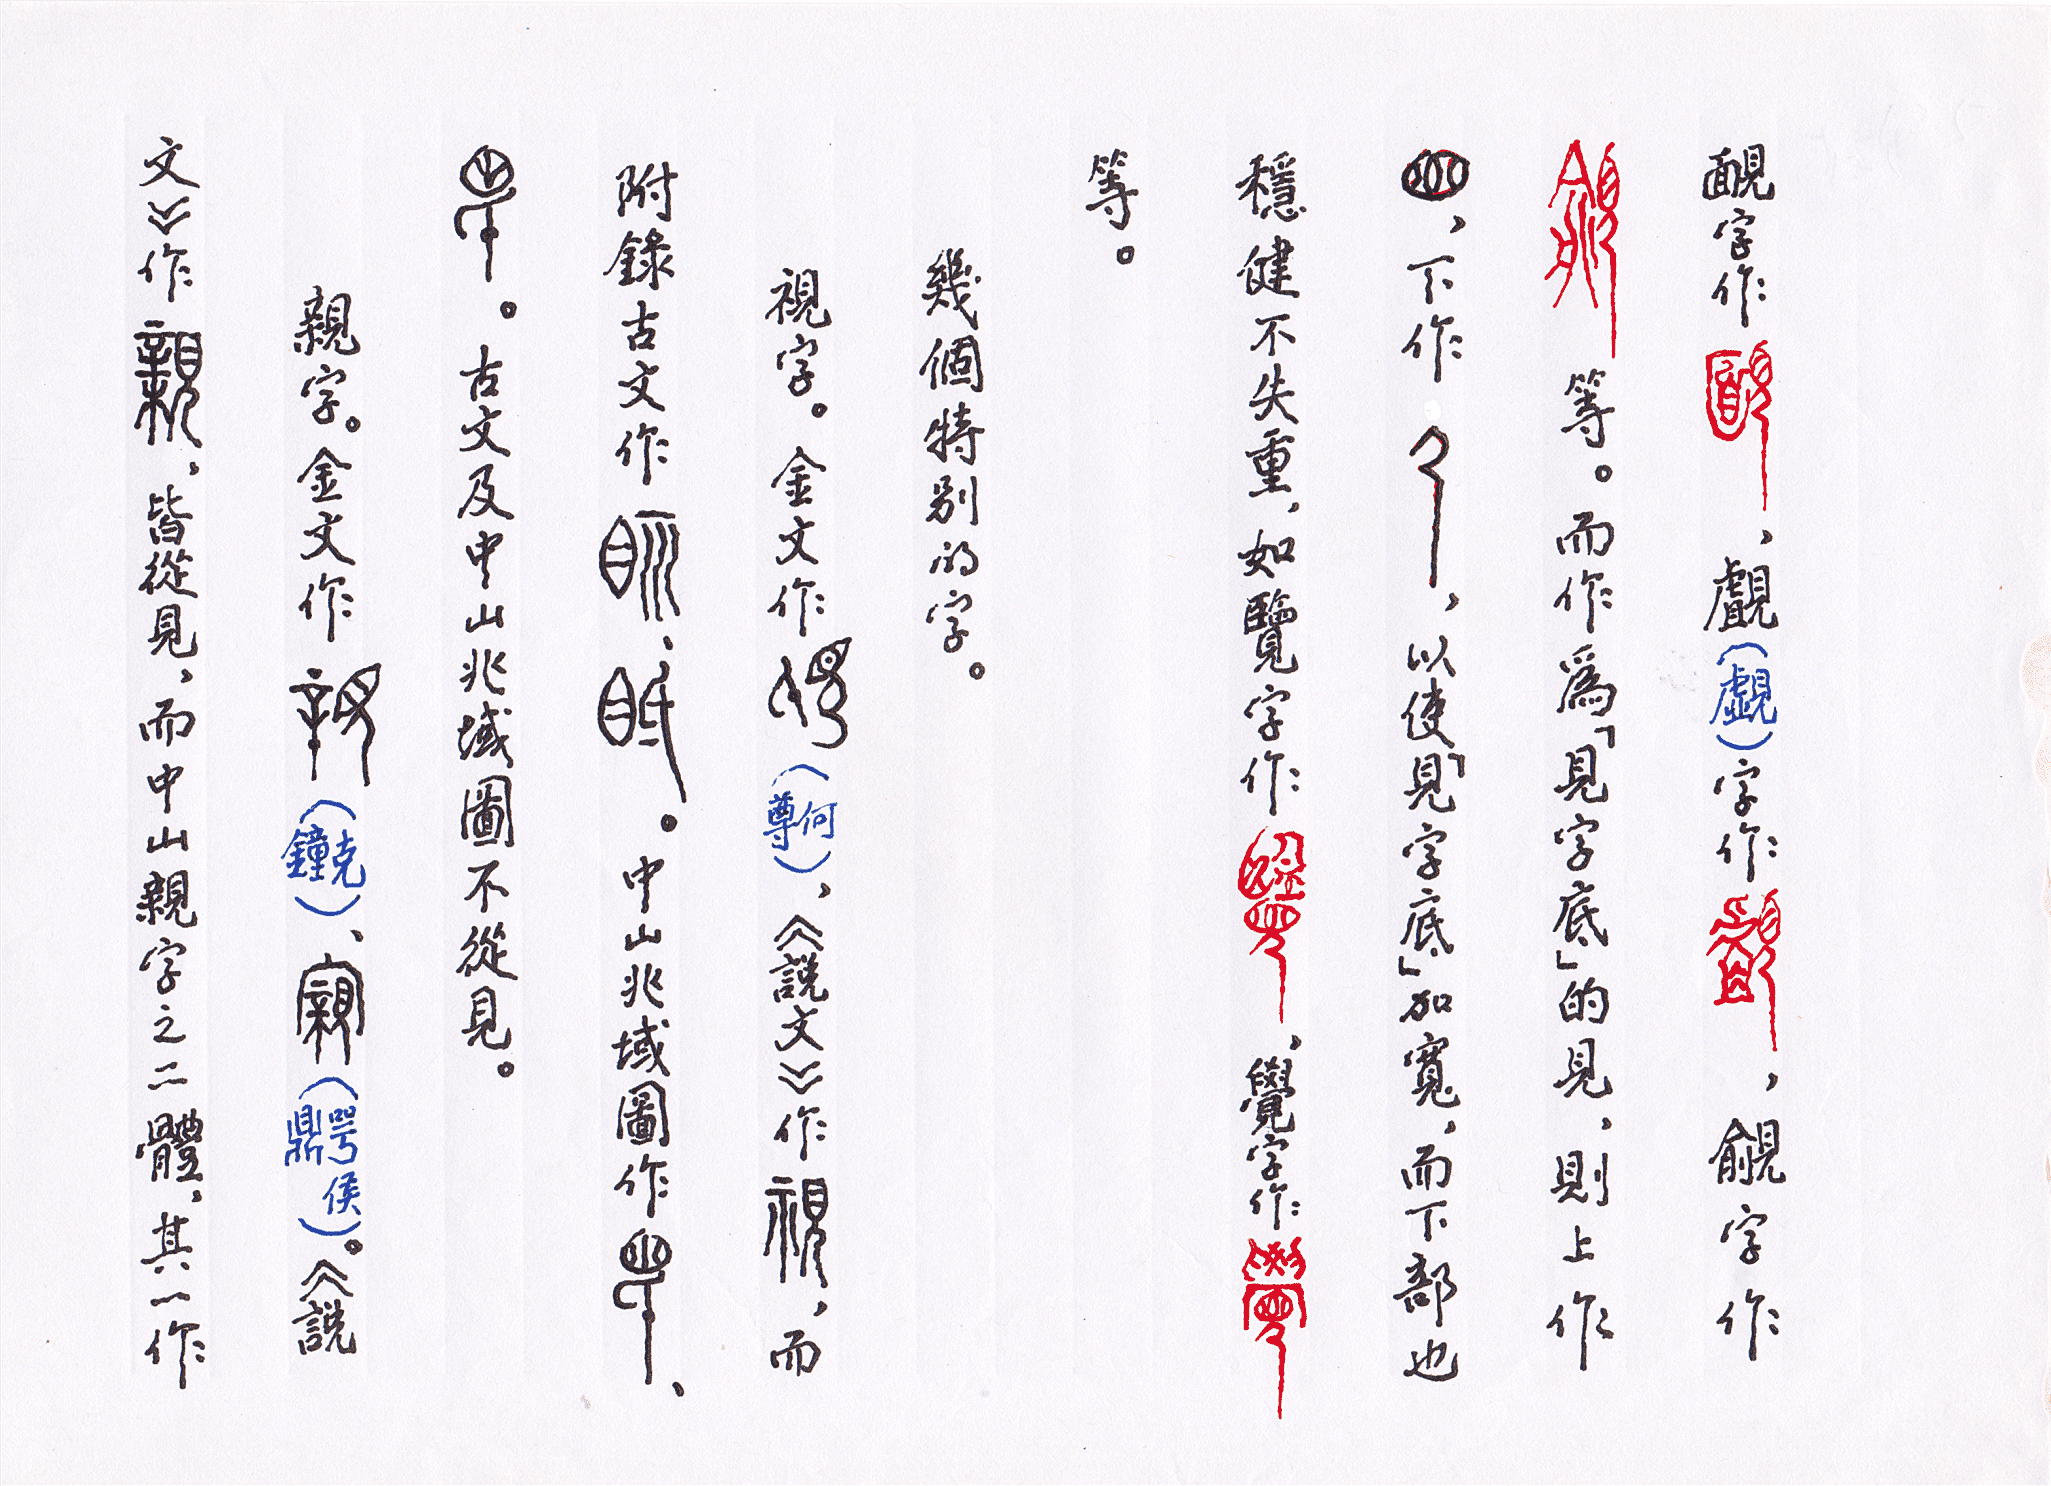 靦字作，覰（覷）字作，覦字作
等。而作爲「見字底」的見，則上作
，下作，以使「見字底」加寬，而下部也
穩健不失重，如覽字作，覺字作
等。
幾個特別的字。
視字。金文作（何尊），《說文》作視，而
附錄古文作眎、眡。中山兆域圖作、
。古文及中山兆域圖不從見。
親字。金文作（克鐘）、（噩侯鼎）。《說
文》作親，皆從見，而中山親字之二體，其一作